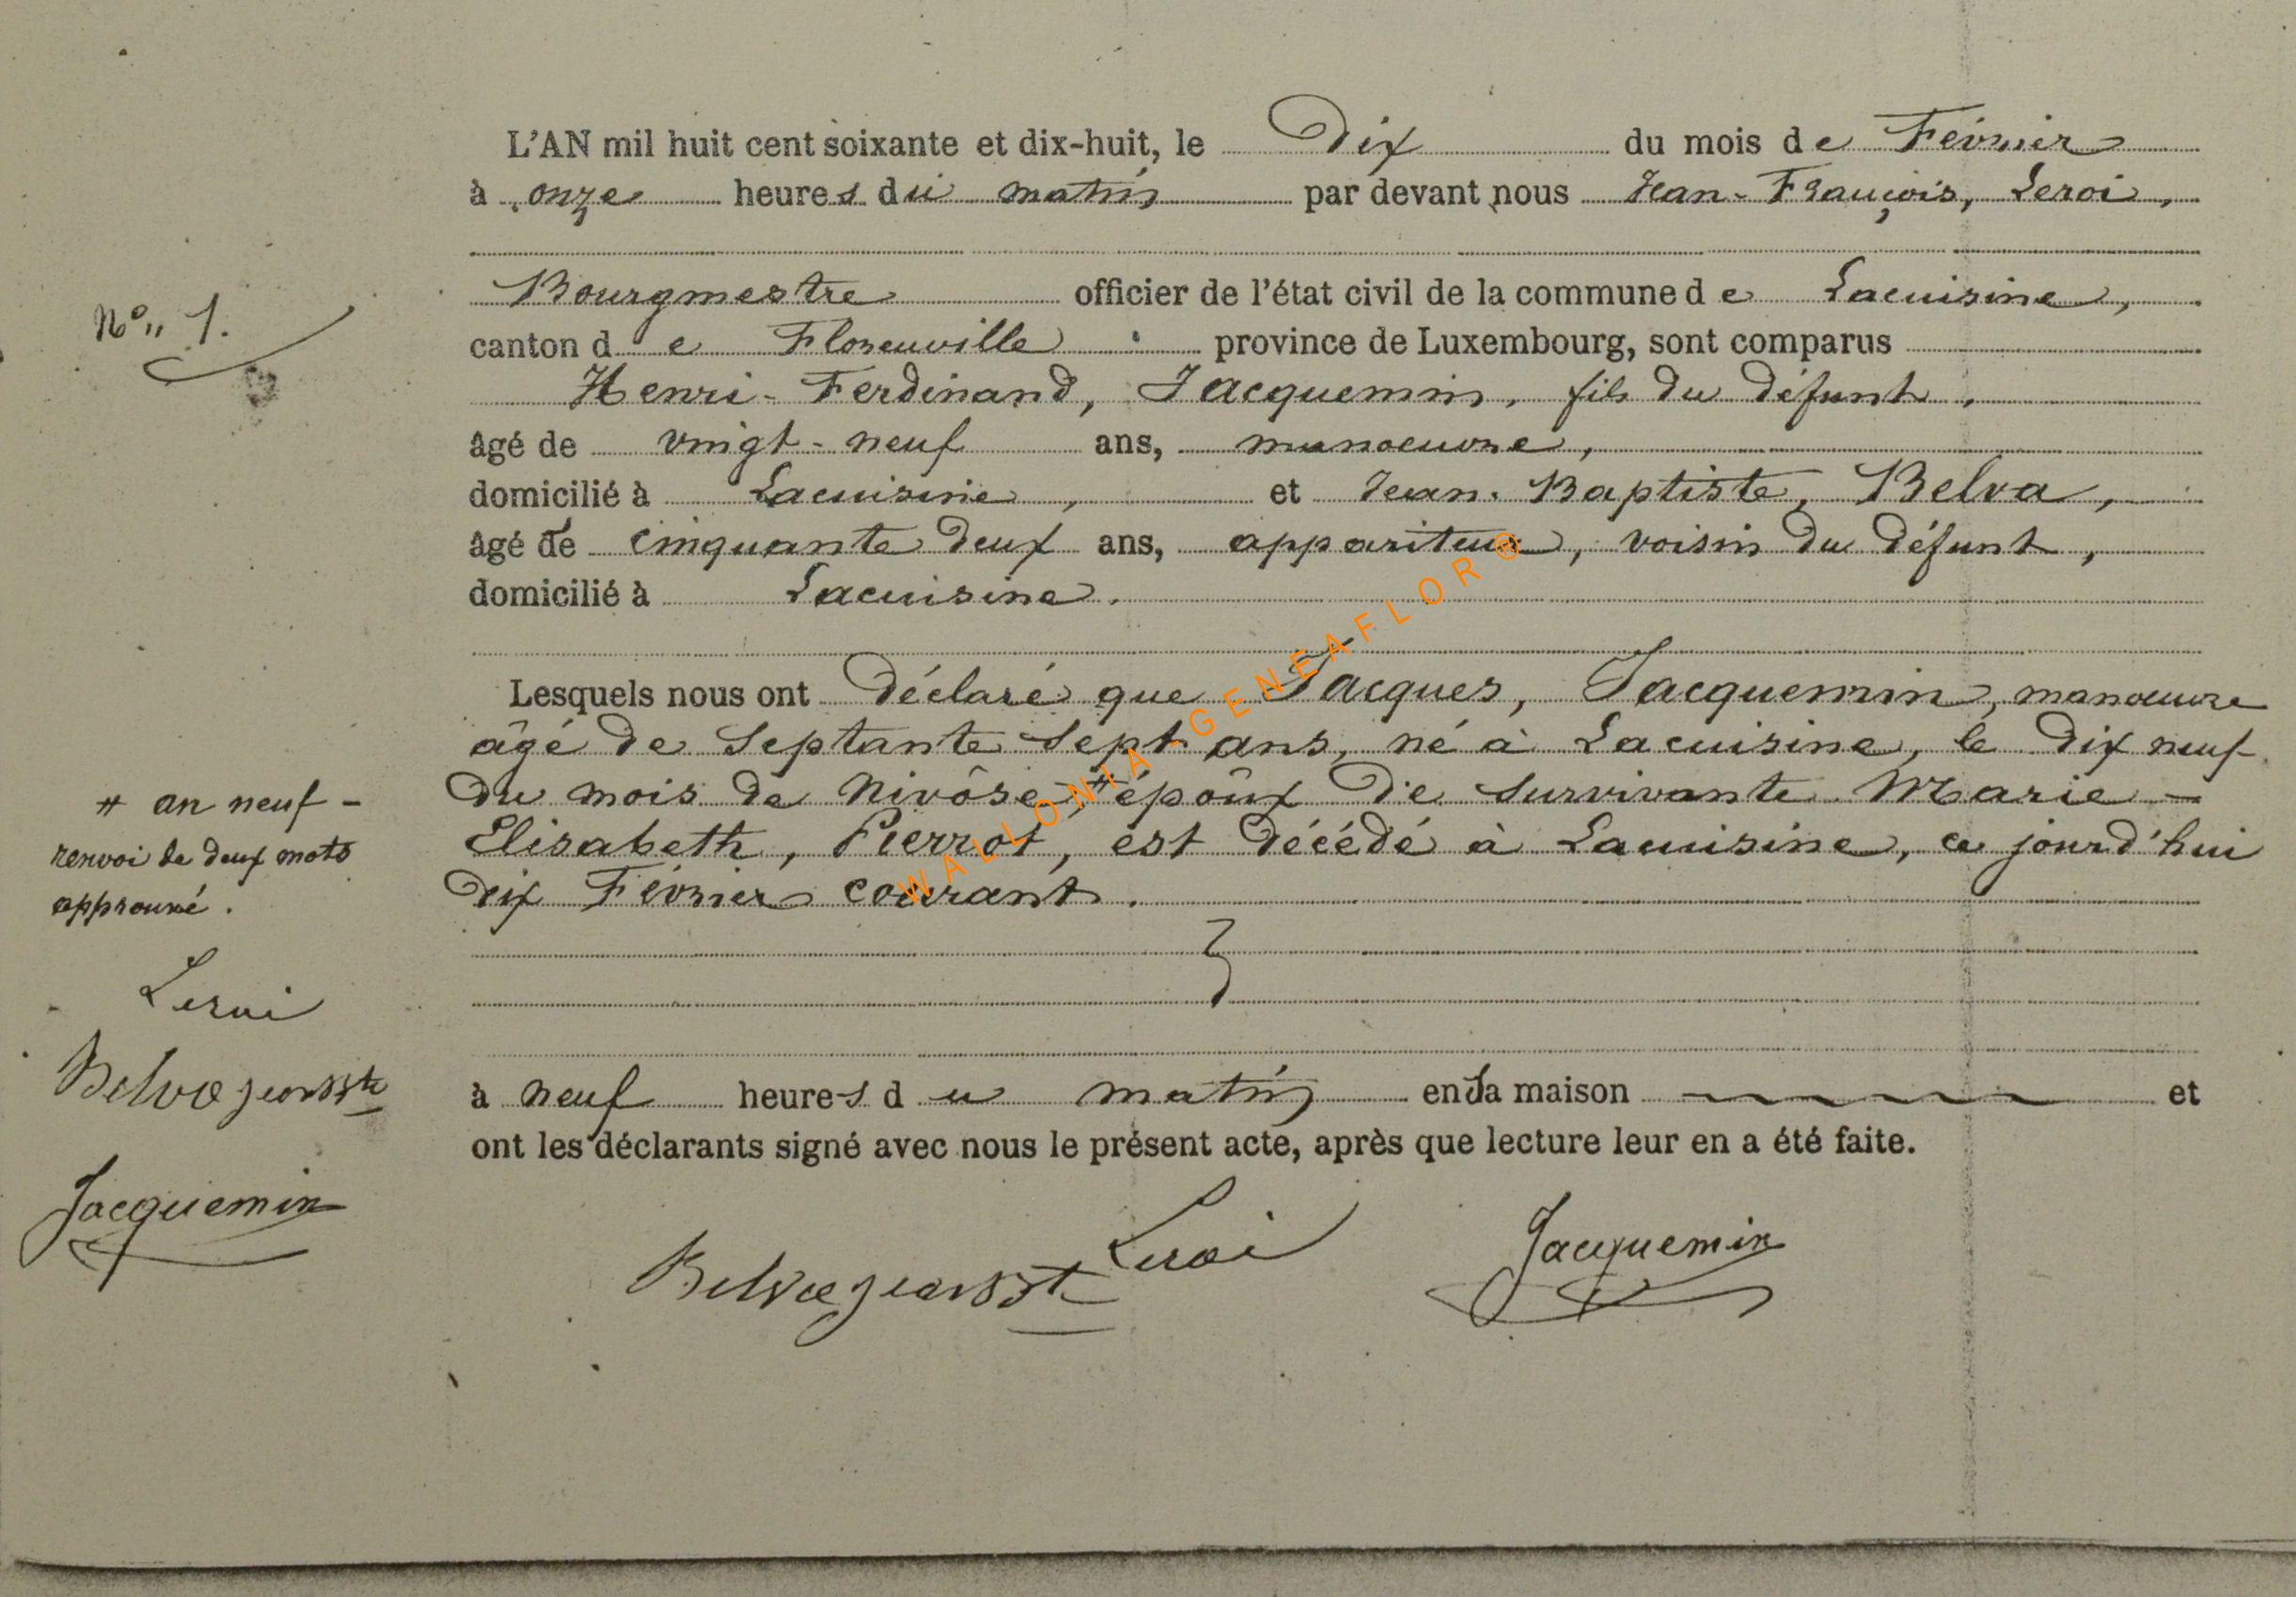 L'AN mil huit cent soixante et dix-huit, le Dix du mois de Février
à onze heures du matin par devant nous Jean-François, Leroi,
Bourgmestre officier de l'état civil de la commune de Lacuisine,
N° 1.
canton de Florenville province de Luxembourg, sont comparus
Henri-Ferdinand, Jacquemin, fils du défunt,
âgé de vingt-neuf ans, manoeuvre,
domicilié à Lacuisine, et Jean-Baptiste, Belva,
âgé de cinquante deux ans, appariteur, voisin du défunt,
domicilié à Lacuisine.
Lesquels nous ont déclaré que Jacques, Jacquemin, manoeuvre
âgé de septante sept ans, né à Lacuisine, le dix neuf
du mois de Nivôse, # époux de survivante Marie-
Elisabeth, Pierrot, est décédé à Lacuisine, ce jourd'hui
dix Février courant.
# an neuf -
renvoi de deux mots
approuvé.
Leroi
Belva jean Bte
Jacquemin
à neuf heures du matin en sa maison et
ont les déclarants signé avec nous le présent acte, après que lecture leur en a été faite.
Belva jean Bte Leroi Jacquemin
WALLONIA - GENEAFLOR ®